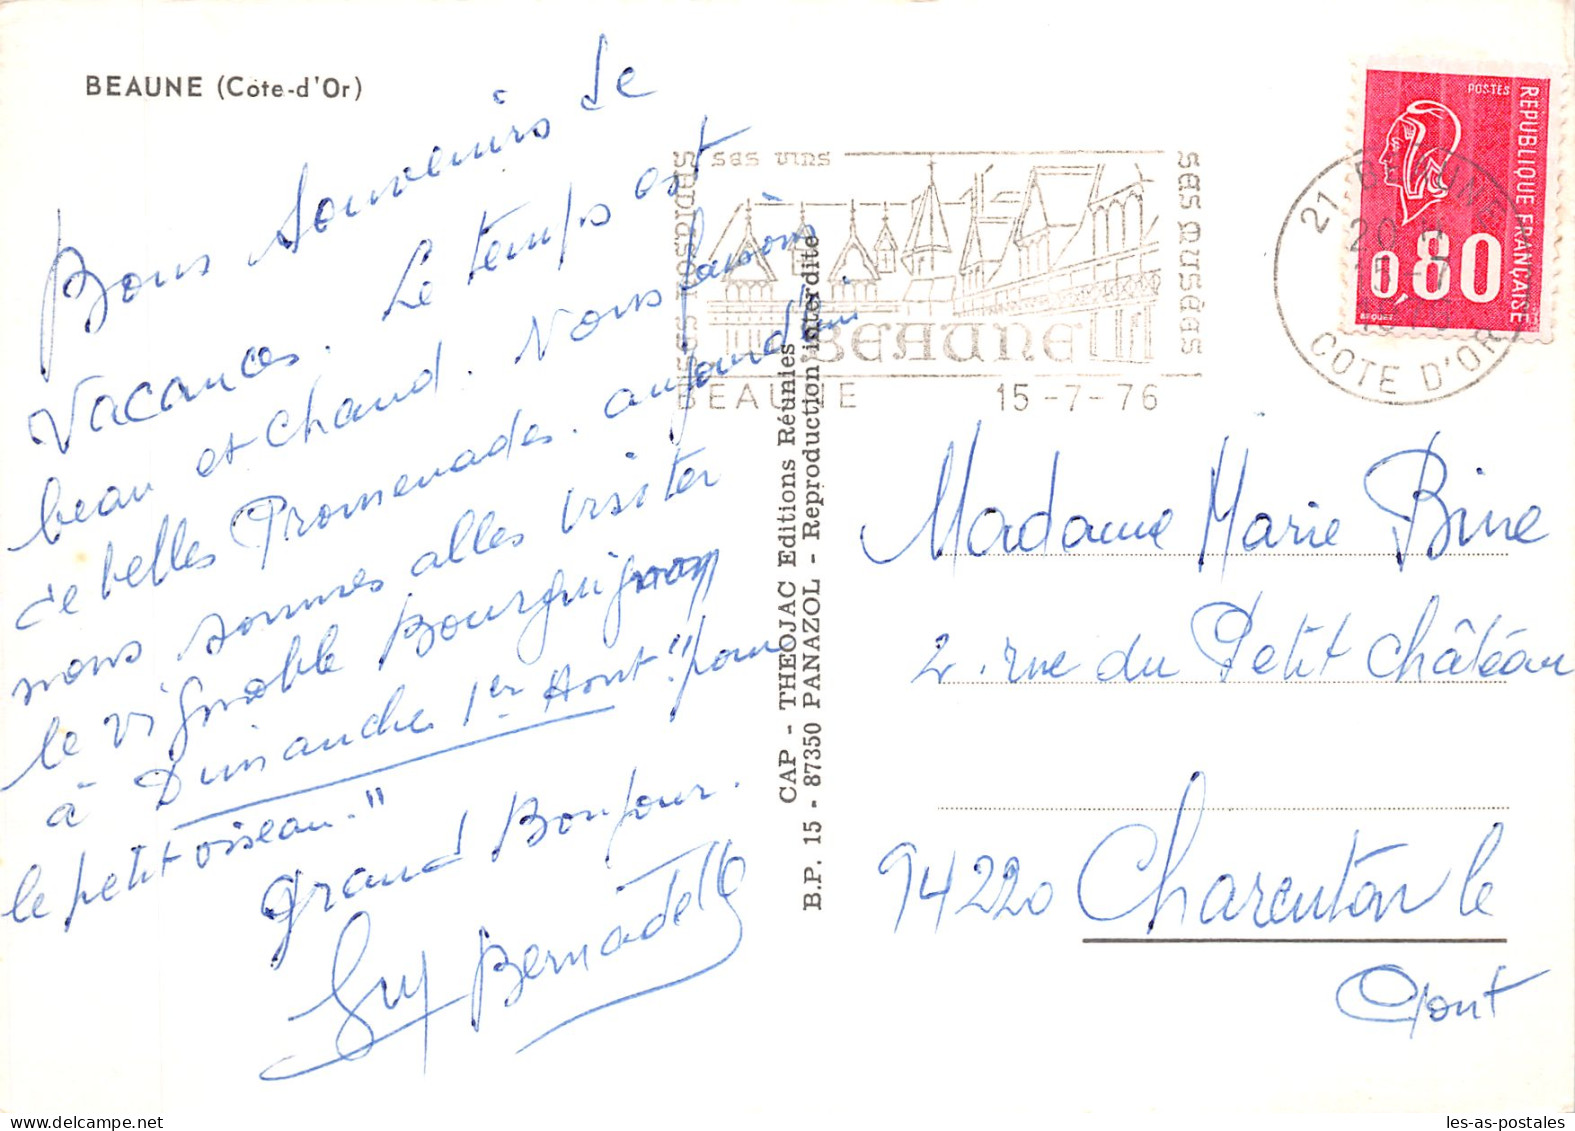 BEAUNE (Côte-d'Or)
Bons Souvenirs de
Vacances. Le temps est
beau et chaud. Nous faisons
de belles Promenades. aujourd'hui
nous sommes allés visiter
le vignoble Bourguignon
à Dimanche 1er Aout "pour
le petit oiseau."
Grand Bonjour.
Guy Bernadette
CAP - THEOJAC Editions Réunies
B.P. 15 - 87350 PANAZOL - Reproduction interdite
SES HOSPICES
SES VINS
SES MUSÉES
BEAUNE
BEAUNE 15-7-76
21 BEAUNE
20 H
15-7
COTE D'OR
POSTES
REPUBLIQUE FRANÇAISE
0,80
BEQUET
Madame Marie Bine
2. rue du Petit Château
94220 Charenton le
Pont
les-as-postales